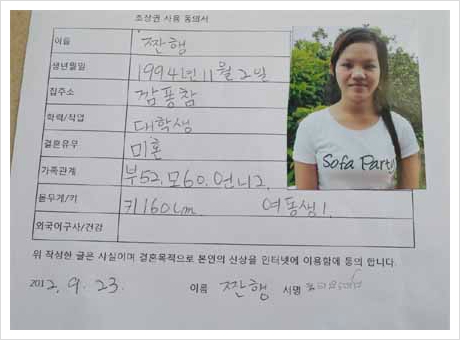 초상권 사용 동의서
이름 짠행
생년월일 1994년 11월 2일
집주소 캄퐁참
학력/직업 대학생
결혼유무 미혼
가족관계 부52. 모60. 언니2.
몸무게/키 키160cm 여동생1.
외국어구사/건강
Sofa Party
위 작성한 글은 사실이며 결혼목적으로 본인의 신상을 인터넷에 이용함에 동의 합니다.
2012. 9. 23. 이름 짠행 서명